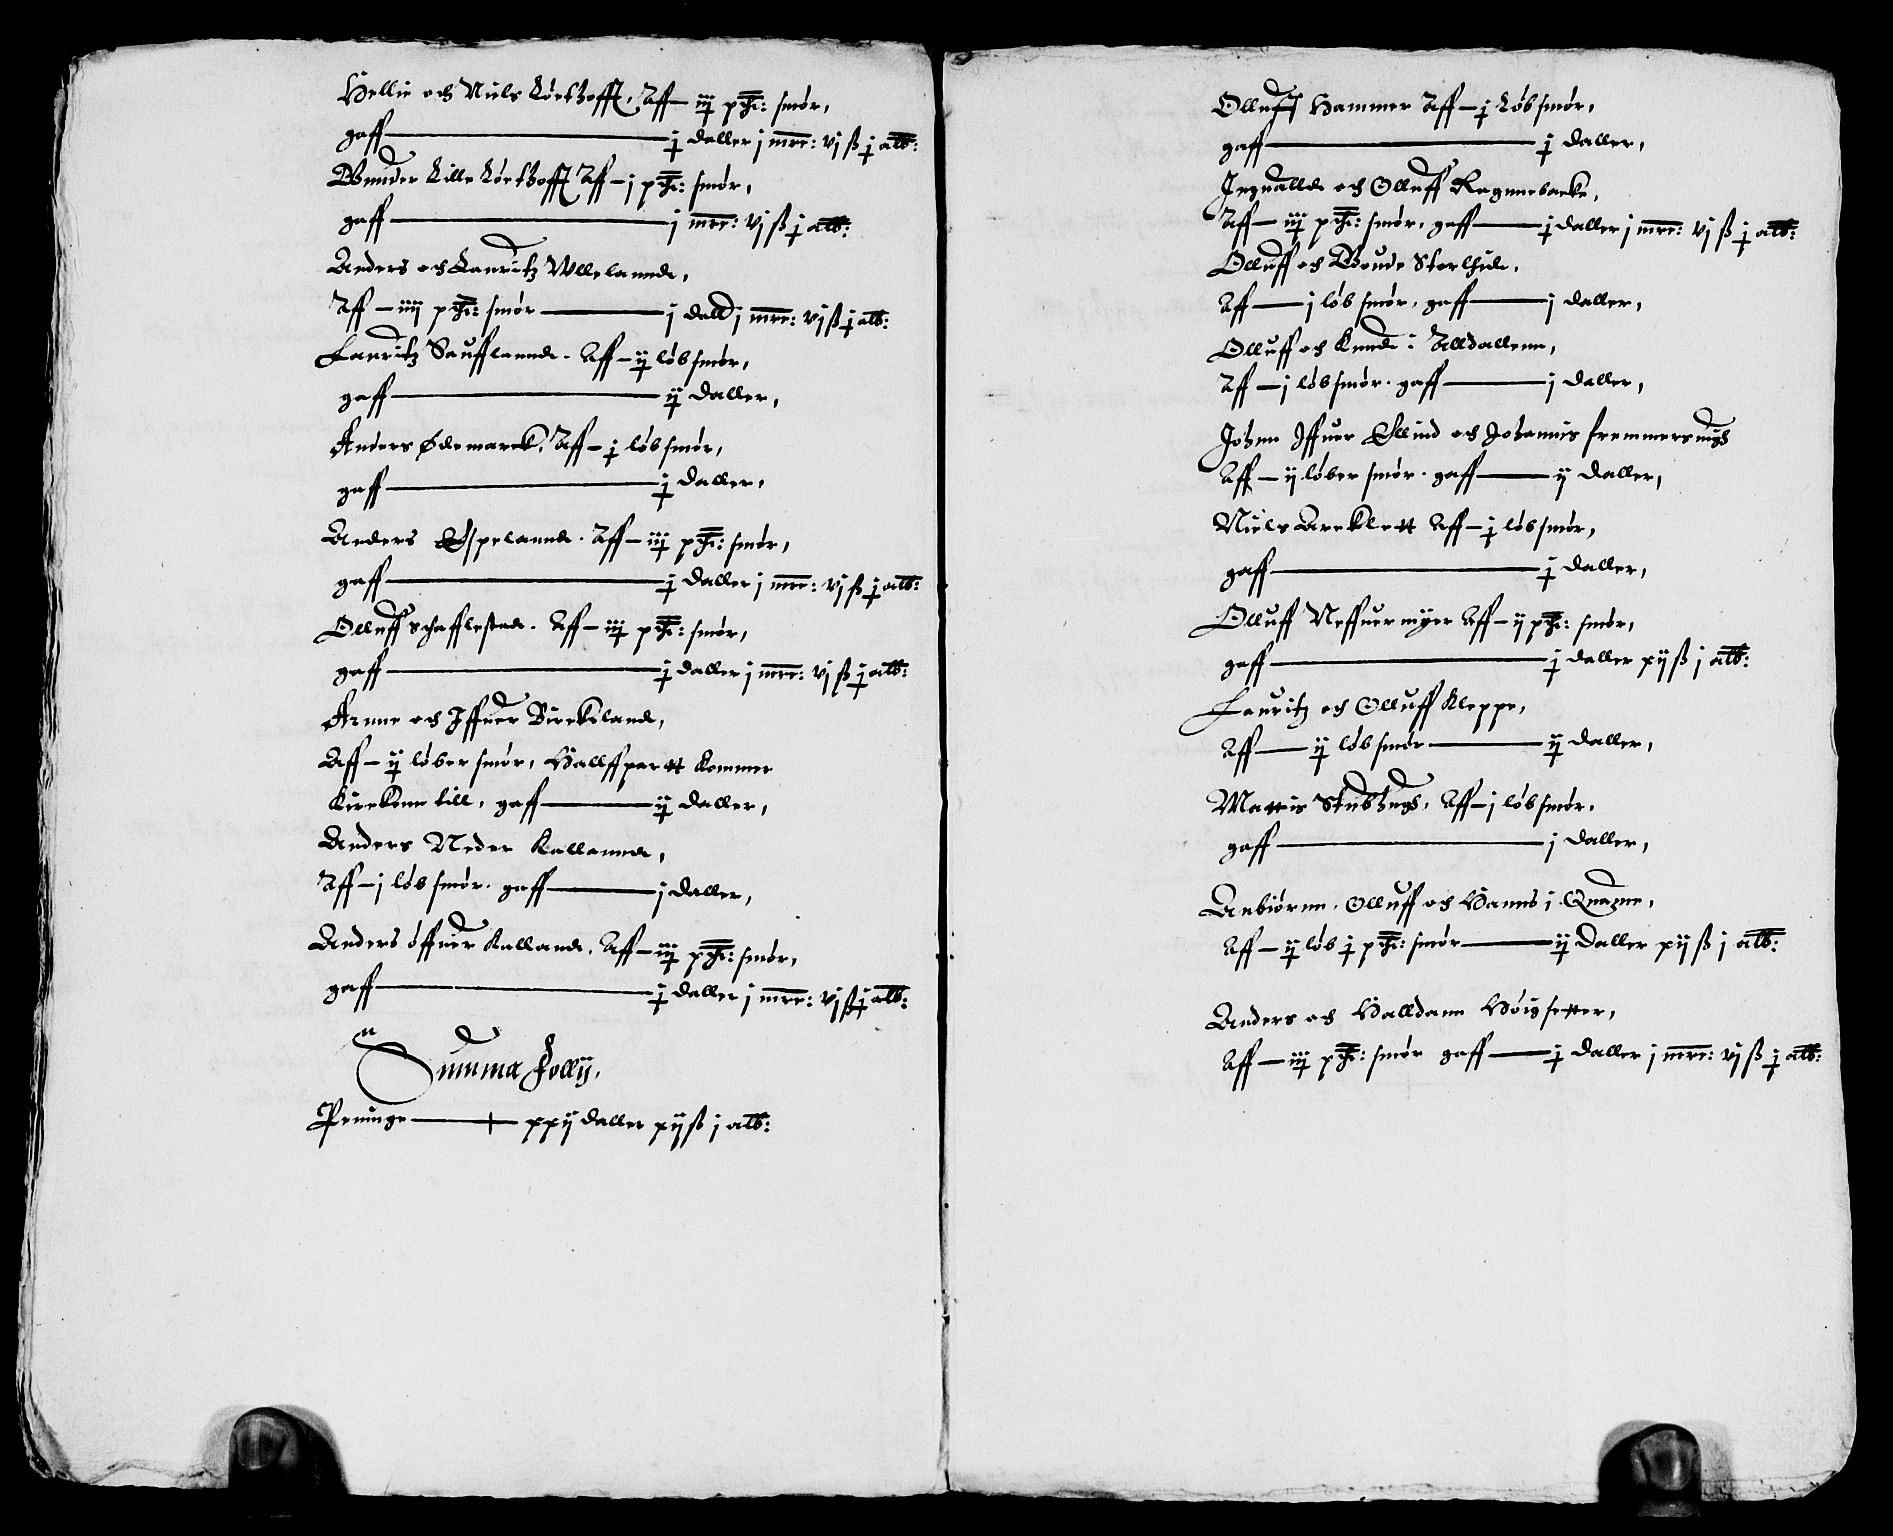 Hellie och Niels Kørthofft, Aff — iij pdh: smør,
gaff — j daller j mrc: vj ß j alb:
Gunder Lille Kørthofft Aff — j pdh: smør,
gaff — j mrc: vj ß j alb:
Anders och Lauritz Ullelannde,
Aff — iiij pdh: smør — j dall j mrc: vj ß j alb:
Lauritz Saufflannde. Aff — ij løb smør,
gaff — ij daller,
Anders Ødemarck, Aff — j løb smør,
gaff — j daller,
Anders Espelannde. Aff — iij pdh: smør,
gaff — j daller j mrc: vj ß j alb:
Olluff Schafflestad. Aff — iij pdh: smør,
gaff — j daller j mrc: vj ß j alb:
Arnne och Iffuer Birckeland,
Aff — ij løber smør, Hallffpartt kommer
Kirckenn till, gaff — ij daller,
Anders Neder Kallannde,
Aff — j løb smør. gaff — j daller,
Anders Øffuer Kallande. Aff — iij pdh: smør,
gaff — j daller j mrc: vj ß j alb:
Summa Follij,
Penninge — xxij daller xij ß j alb:
Olluff Hammer Aff — j løb smør,
gaff — j daller,
Inguallde och Olluff Ragnnebacke,
Aff — iij pdh: smør, gaff — j daller j mrc: vj ß j alb:
Olluff och Goude Storlhiede,
Aff — j løb smør, gaff — j daller,
Olluff och Knud i Alldallenn,
Aff — j løb smør. gaff — j daller,
Johann Iffuer Ellind och Johannis Fremmersuigh
Aff — ij løber smør. gaff — ij daller,
Niels Areklett Aff — j løb smør,
gaff — j daller,
Olluff Neffuermyer Aff — ij pdh: smør,
gaff — j daller xij ß j alb:
Lauritz och Olluff Kleppe,
Aff — ij løb smør — ij daller,
Mattis Stubhugh, Aff — j løb smør,
gaff — j daller,
Anbiørnn, Olluff och Hanns i Quame,
Aff — ij løb j pdh: smør — ij daller xij ß j alb:
Anders och Halldann Høigsetter,
Aff — iij pdh: smør gaff — j daller j mrc: vj ß j alb: